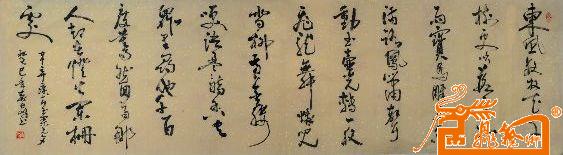 東風夜放花千
樹更吹落星
雨寶馬雕
滿路鳳簫聲
動玉壺光轉一夜
魚龍舞蛾兒
雪柳黃金縷
笑語盈盈暗香去
衆里尋他千百
度驀然回首那
人却在燈火闌珊
處
辛弃疾青玉案元夕
癸巳年